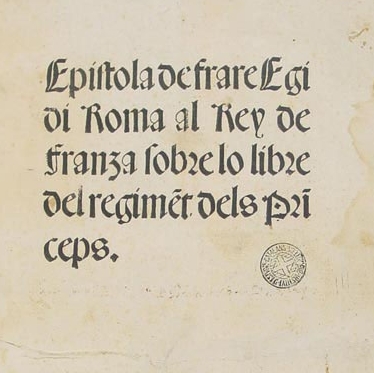 Epistola de frare Egi
di Roma al Rey de
franza sobre lo libre
del regimẽt dels Prĩ
ceps.